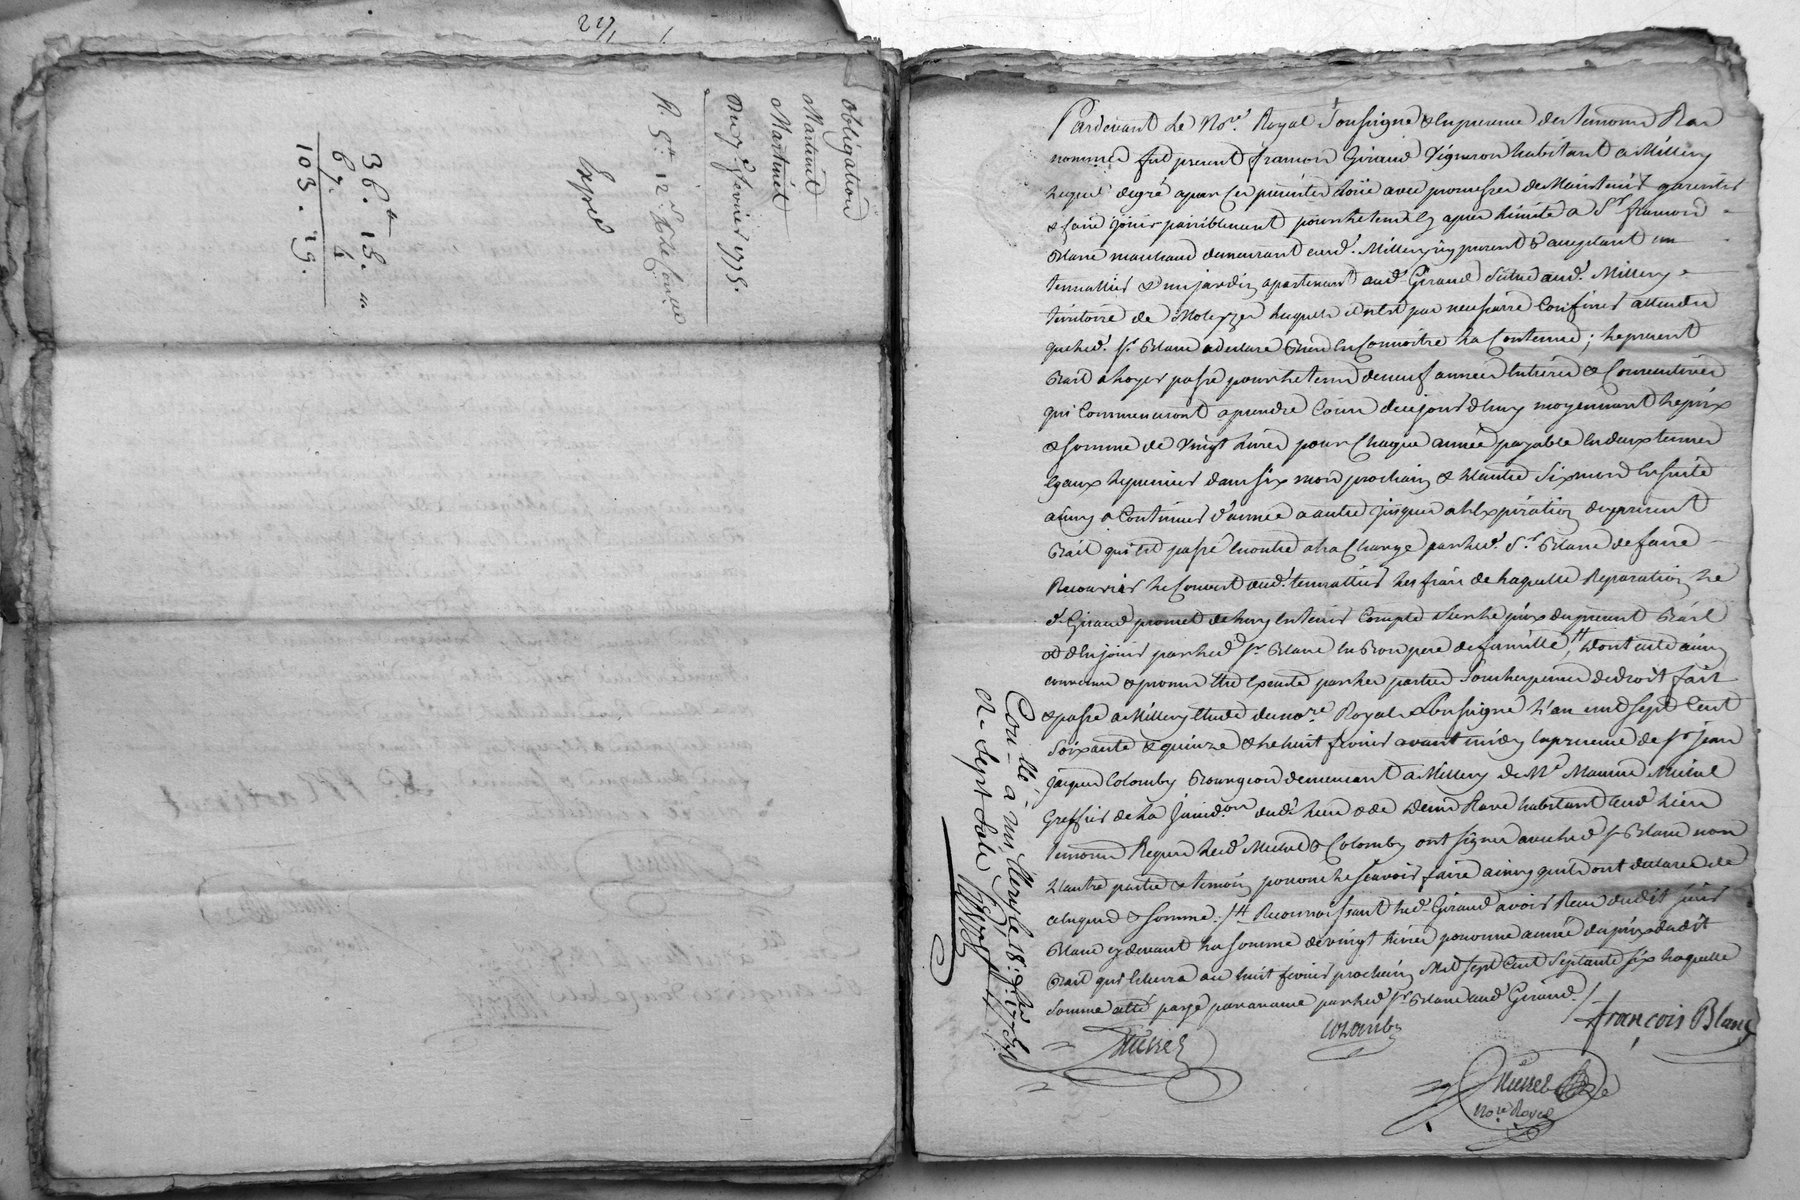 Obligation
Martinit
Martinet
Du 7 fevrier 1775.
R. 5.tt 12.s
Expedié
36.tt 15. "
67. 4
103. 19.
Pardevant le No.re Royal Soussigné & en presence des temoins Bas
nommés fut present francois Giraud Vigneron habitant a Millery
lequel degré apar ces presentes loüé avec promesses de Maintenir garentir
& faire joüir paisiblement pour le tems cy apres limité a S.r francois
Blanc marchand demeurant aud.t Millery icy present & acceptant un
tenaillier & un jardin apartenant aud.t Giraud Situé aud.t Millery
territoire de lesquels n'ont pas neufaire Confiner attendu
que led.t S.r Blanc a declaré Bien en Connoitre la Contenue; le present
Bail a loyer passé pour le tems de neuf années Entieres & Consecutives
qui Commenceront a prendre Cours dece jourd'huy moyennant le prix
& somme de Vingt livres pour Chaque année payable en deux termes
Egaux le premier dans six mois prochain & l'autre Six mois Ensuite
ainsy a Continuer d'année a autre jusques a l'Expiration du present
Bail qui est passé Enoutre a la Charge par led.t S.r Blanc de faire
Recouvrir le Couvert dud.t tenaillier les frais de laquelle Reparation le
d.t Giraud promet de luy en tenir Compte Sur le prix du present Bail
& d'En joüir par led.t S.r Blanc en Bon pere de famille, H dont acte ainsy
convenu & promis Etre Executé par les parties Sous les peines de droit fait
& passé a Millery Etude du no.re Royal Soussigné L'an mil sept Cent
Soixante & quinze & le huit fevrier avant midy En presence de S.r Jean
Jacques Colomby Bourgeois demeurant a Millery de M.e Maurice
Greffier de la Jurid.on dud.t lieu & de Denis Rave habitant aud.t lieu
temoins Requis led.t & Colomby ont signés avec led.t S.r Blanc non
l'autre partie & temoin pour ne le Sçavoir faire ainsy qu'ils ont declaré de
ce Enquis & sommé. /H Reconnoissant led.t Giraud avoir Reçu dudit Sieur
Blanc cy devant la somme de vingt livres pour une année du prix dudit
Bail qui Echerra au huit fevrier prochain Mil Sept Cent Septante Six laquelle
Somme a été payé par avance par led.t S.r Blanc aud.t Giraud. /
françois Blanc
Colomby
No.re Royal
Con.llé à Millery le 18.e f.er 1775
R. Sept Sols